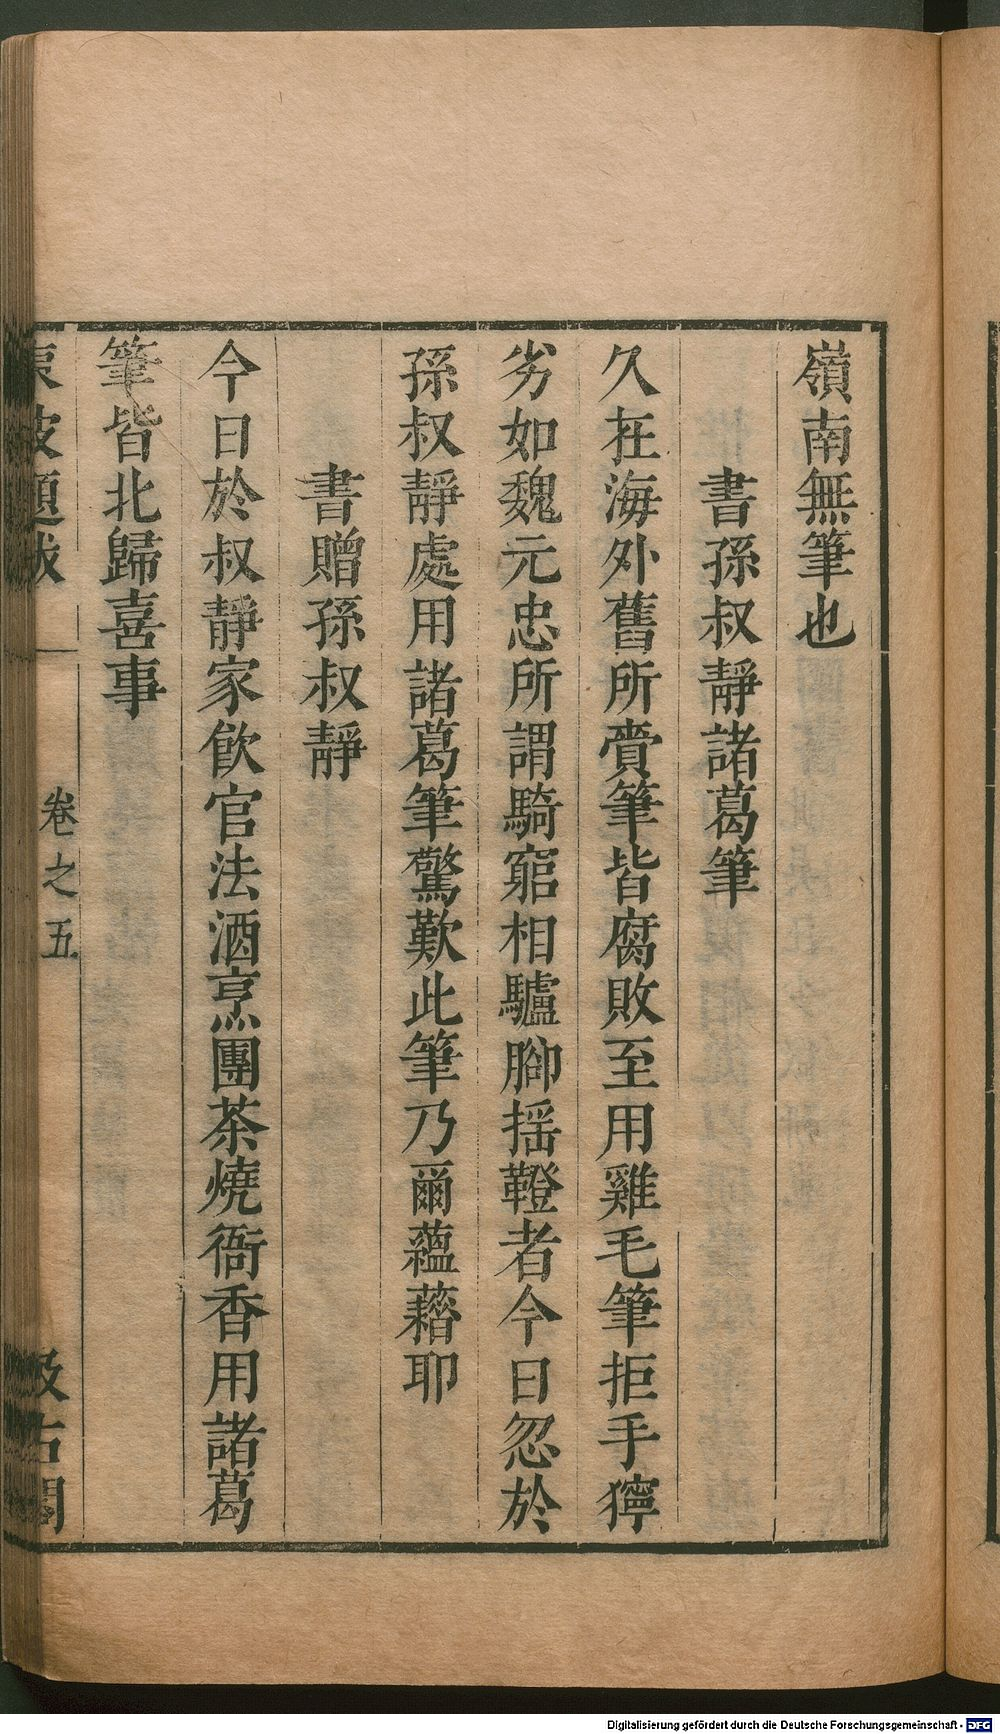 嶺南無筆也
書孫叔靜諸葛筆
久在海外舊所賷筆皆腐敗至用雞毛筆拒手獰
劣如魏元忠所謂騎窮相驢腳揺鐙者今日忽於
孫叔靜處用諸葛筆驚歎此筆乃爾蘊藉耶
書贈孫叔靜
今日於叔靜家飲官法酒烹團茶燒衙香用諸葛
筆皆北歸喜事
東坡題跋
卷之五
汲古閣
Digitalisierung gefördert durch die Deutsche Forschungsgemeinschaft - DFG